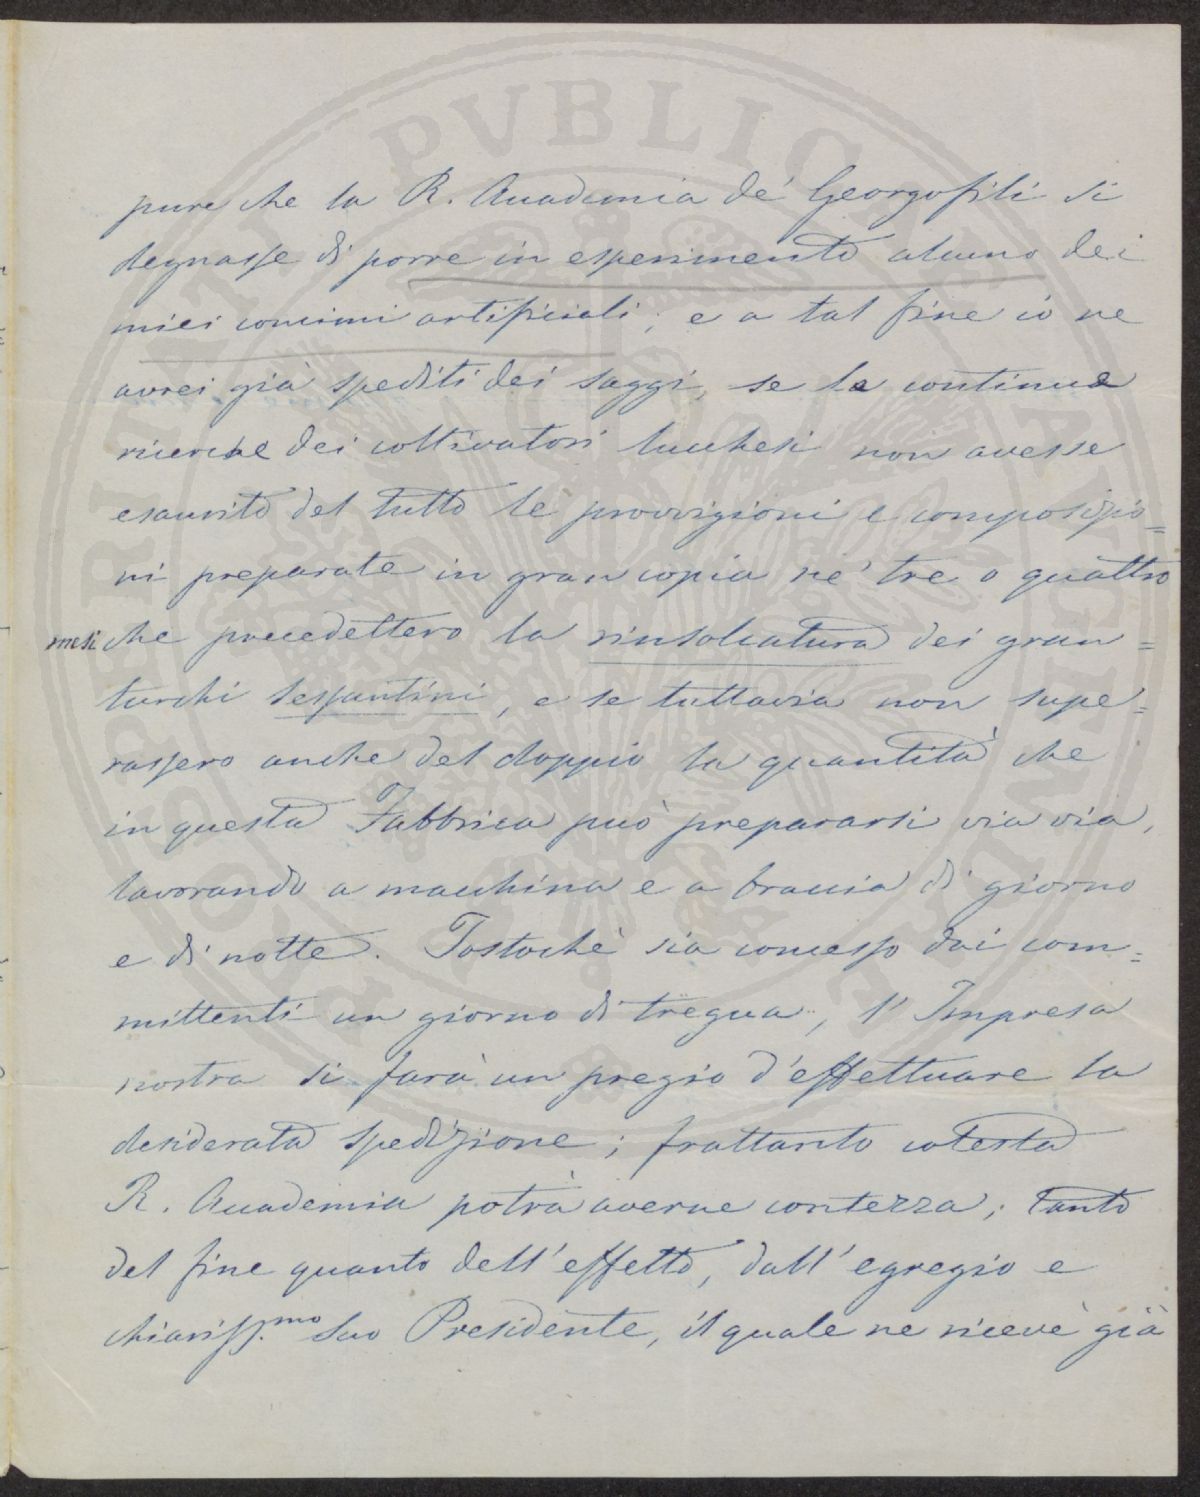 pure che la R. Accademia de' Georgofili si
degnasse di porre in esperimento alcuno dei
miei concimi artificiali; e a tal fine io ne
avrei già spediti dei saggi, se le continue
ricerche dei coltivatori lucchesi non avesse
esaurito del tutto le provvigioni e composizio=
ni preparate in gran copia ne' tre o quattro
mesi che precedettero la rinsolcatura dei gran=
turchi sessantini, e se tuttavia non supe=
rassero anche del doppio la quantità che
in questa Fabbrica può prepararsi via via,
lavorando a macchina e a braccia di giorno
e di notte. Tostochè sia concesso dai com=
mittenti un giorno di tregua, l'Impresa
nostra si farà un pregio d'effettuare la
desiderata spedizione; frattanto cotesta
R. Accademia potrà averne contezza, tanto
del fine quanto dell'effetto, dall'egregio e
chiariss.mo suo Presidente, il quale ne ricevè già